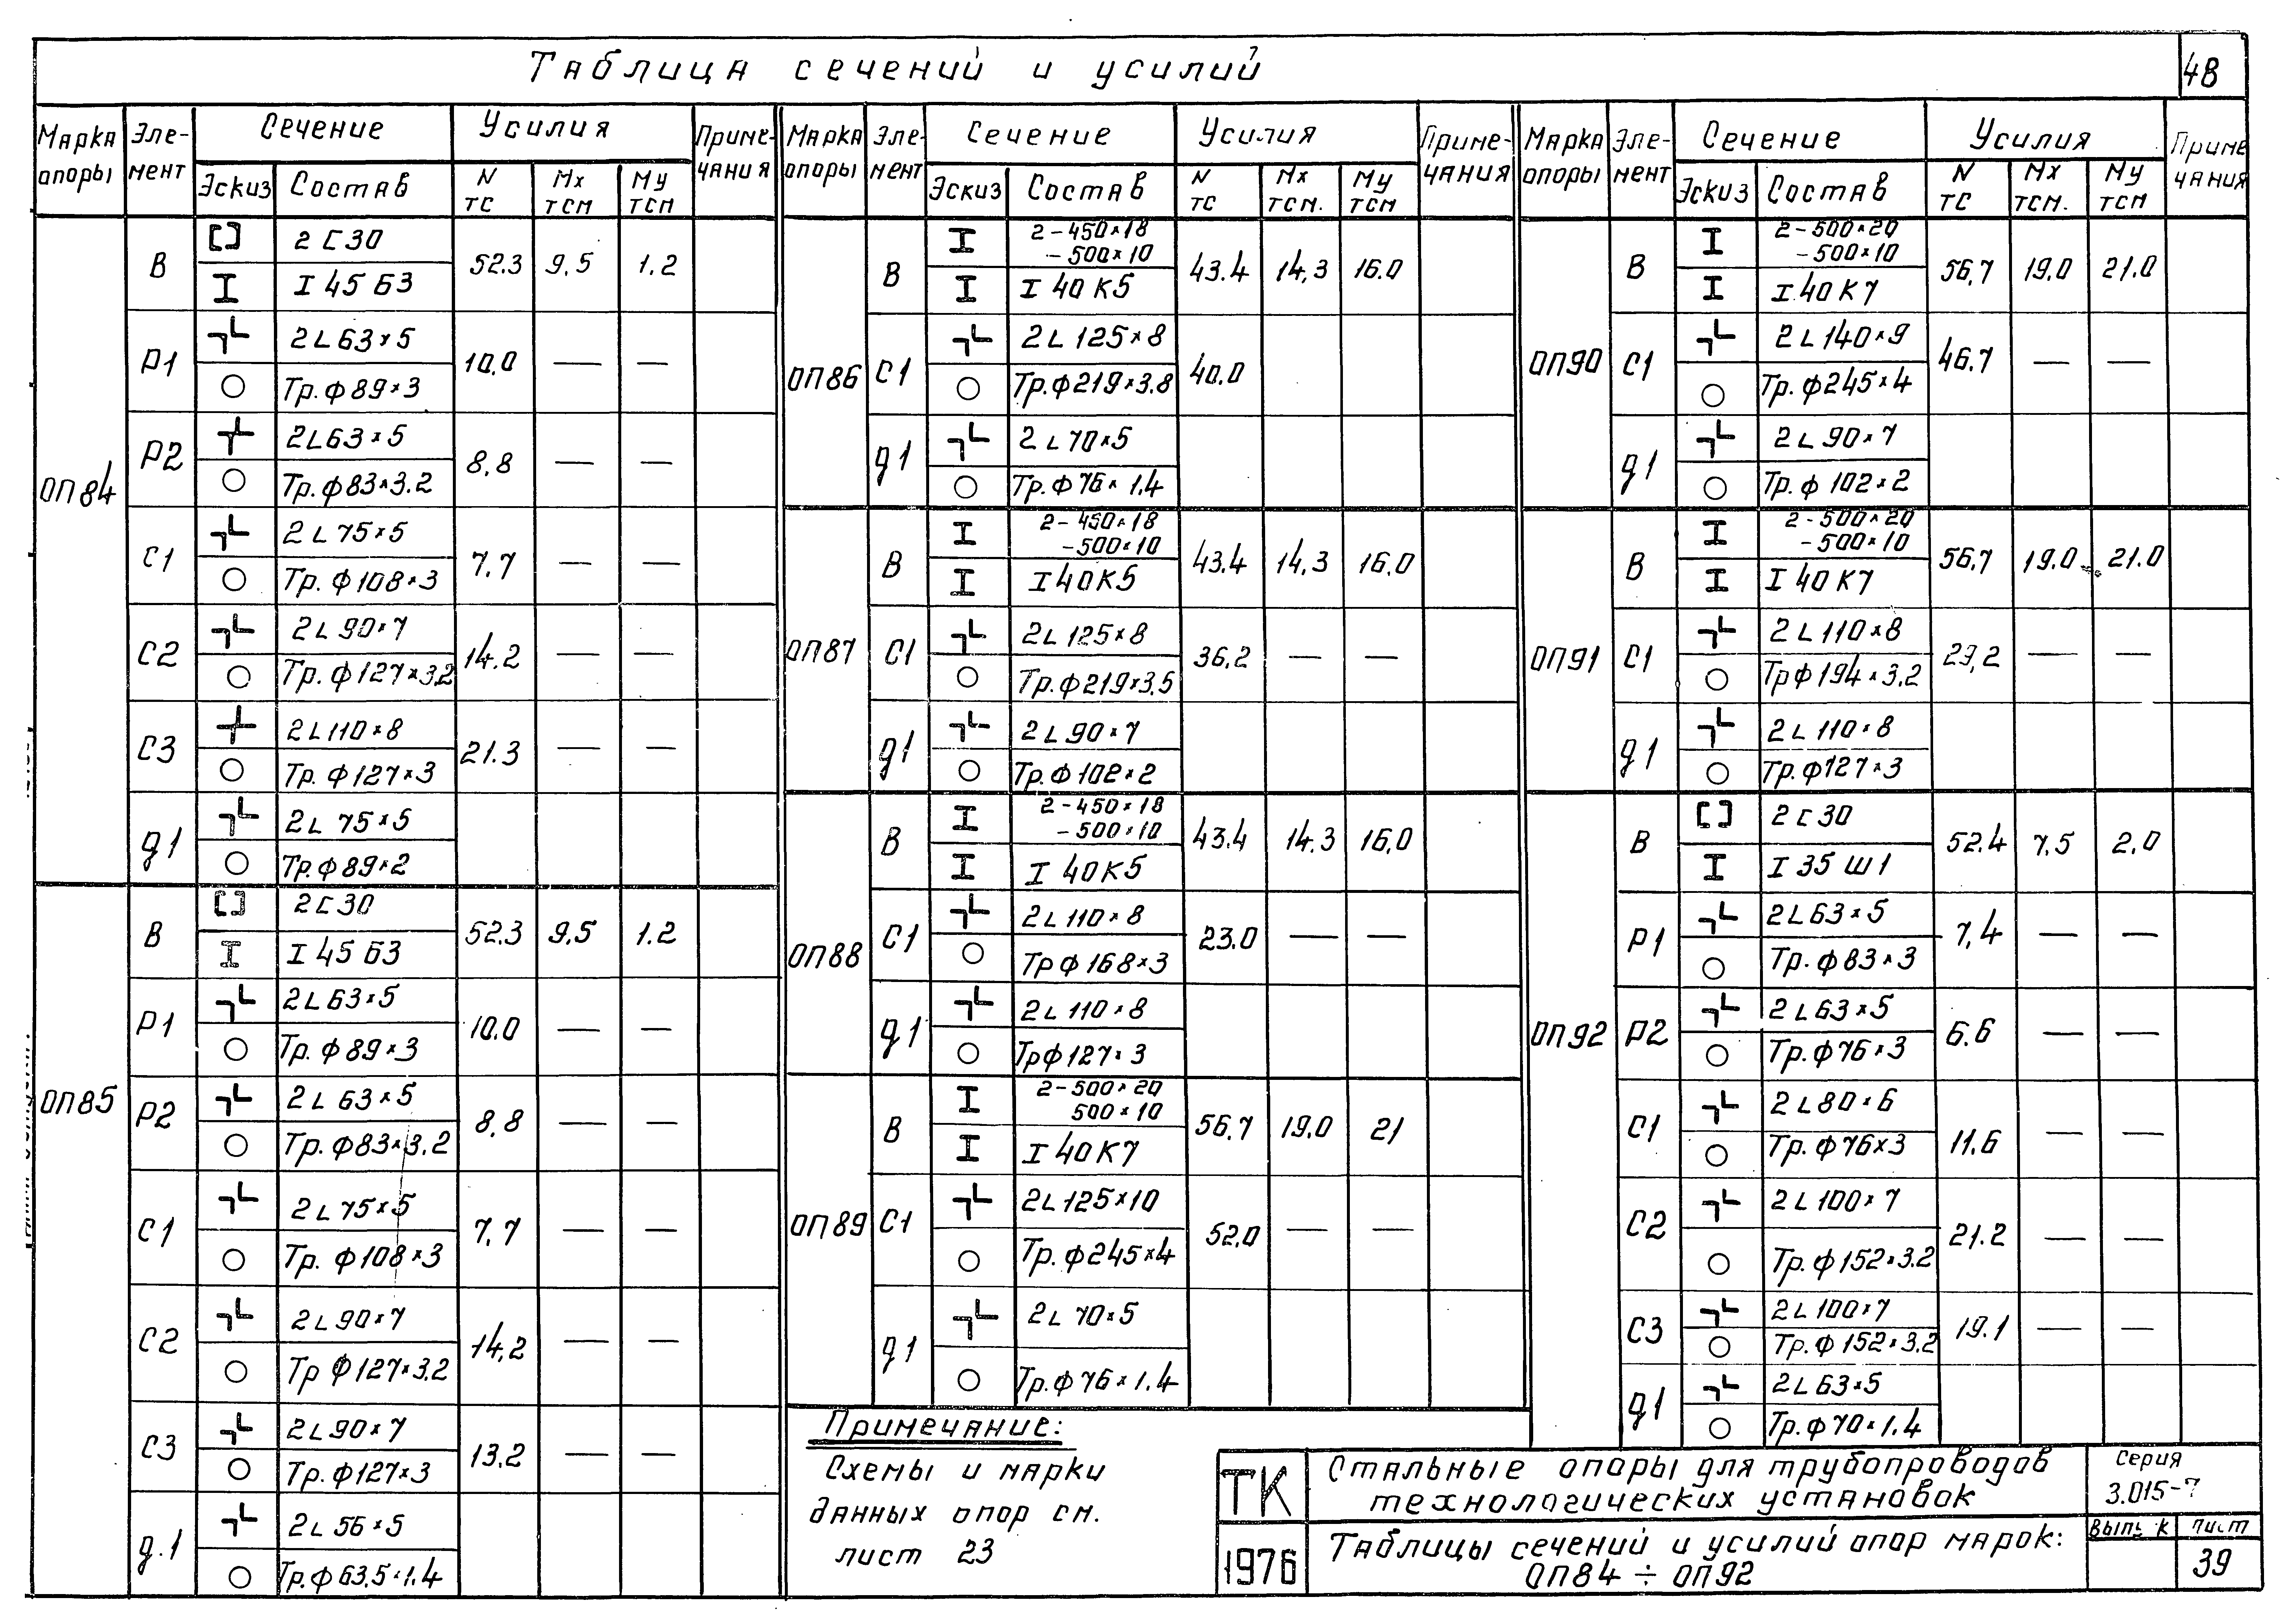 Таблица сечений и усилий
48
Марка опоры Элемент Сечение Усилия Примечания
Эскиз Состав N тс Mx тсм My тсм
ОП84
В 2 [ 30 52.3 9.5 1.2
I 45 Б3
Р1 2 L 63×5 10.0 — —
Тр. ф 89×3
Р2 2 L 63×5 8,8 — —
Тр. ф 83×3.2
С1 2 L 75×5 7,7 — —
Тр. ф 108×3
С2 2 L 90×7 14.2 — —
Тр. ф 127×3.2
С3 2 L 110×8 21.3 — —
Тр. ф 127×3
д1 2 L 75×5
Тр. ф 89×2
ОП85
В 2 [ 30 52.3 9.5 1.2
I 45 Б3
Р1 2 L 63×5 10.0 — —
Тр. ф 89×3
Р2 2 L 63×5 8,8 — —
Тр. ф 83×3.2
С1 2 L 75×5 7,7 — —
Тр. ф 108×3
С2 2 L 90×7 14,2 — —
Тр ф 127×3.2
С3 2 L 90×7 13,2 — —
Тр. ф 127×3
д.1 2 L 56×5
Тр. ф 63,5×1.4
Марка опоры Элемент Сечение Усилия Примечания
Эскиз Состав N тс Mx тсм. My тсм
ОП86
В 2-450×18
-500×10 43.4 14,3 16.0
I 40 К5
С1 2 L 125×8 40.0
Тр. ф 219×3.8
д1 2 L 70×5
Тр. ф 76×1.4
ОП87
В 2-450×18
-500×10 43.4 14,3 16,0
I 40 К5
С1 2 L 125×8 36,2 — —
Тр. ф 219×3,5
д1 2 L 90×7
Тр. ф 102×2
ОП88
В 2-450×18
-500×10 43.4 14.3 16,0
I 40 К5
С1 2 L 110×8 23.0 — —
Тр ф 168×3
д1 2 L 110×8
Тр ф 127×3
ОП89
В 2-500×20
500×10 56,7 19.0 21
I 40 К7
С1 2 L 125×10 52,0 — —
Тр. ф 245×4
д1 2 L 70×5
Тр. ф 76×1.4
Примечание:
Схемы и марки
данных опор см.
лист 23
Марка опоры Элемент Сечение Усилия Примечания
Эскиз Состав N тс Mx тсм. My тсм
ОП90
В 2-500×20
-500×10 56,7 19.0 21.0
I 40 К7
С1 2 L 140×9 46.7 — —
Тр. ф 245×4
д1 2 L 90×7
Тр. ф 102×2
ОП91
В 2-500×20
-500×10 56,7 19.0 21.0
I 40 К7
С1 2 L 110×8 29,2 — —
Тр ф 194×3.2
д1 2 L 110×8
Тр. ф 127×3
ОП92
В 2 [ 30 52.4 7,5 2,0
I 35 Ш1
Р1 2 L 63×5 7,4 — —
Тр. ф 83×3
Р2 2 L 63×5 6.6 — —
Тр. ф 76×3
С1 2 L 80×6 11.6 — —
Тр. ф 76×3
С2 2 L 100×7 21.2 — —
Тр. ф 152×3.2
С3 2 L 100×7 19.1 — —
Тр. ф 152×3.2
д1 2 L 63×5
Тр. ф 70×1.4
ТК
1976
Стальные опоры для трубопроводов
технологических установок
Таблицы сечений и усилий опор марок:
ОП84 ÷ ОП92
Серия
3.015-7
Вып. К Лист
39